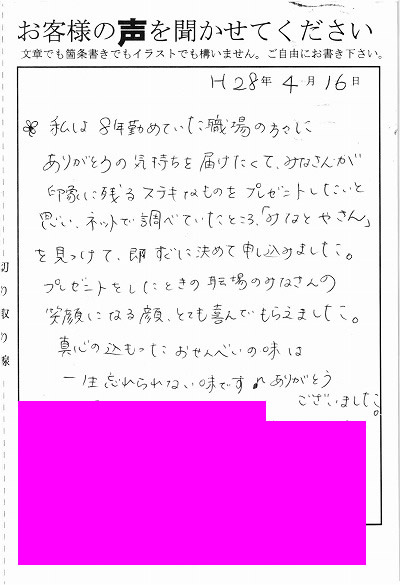 お客様の声を聞かせてください
文章でも箇条書きでもイラストでも構いません。ご自由にお書き下さい。
H 28年 4月 16日
私は 8年勤めていた職場の方々に
ありがとうの気持ちを届けたくて、みなさんが
印象に残るステキなものをプレゼントしたいと
思い、ネットで調べていたところ、「みなとやさん」
を見つけて、即すぐに決めて申し込みました。
プレゼントをしたときの職場のみなさんの
笑顔になる顔、とても喜んでもらえました。
真心の込もったおせんべいの味は
一生忘れられない味です♪ ありがとう
ございました。
切り取り線